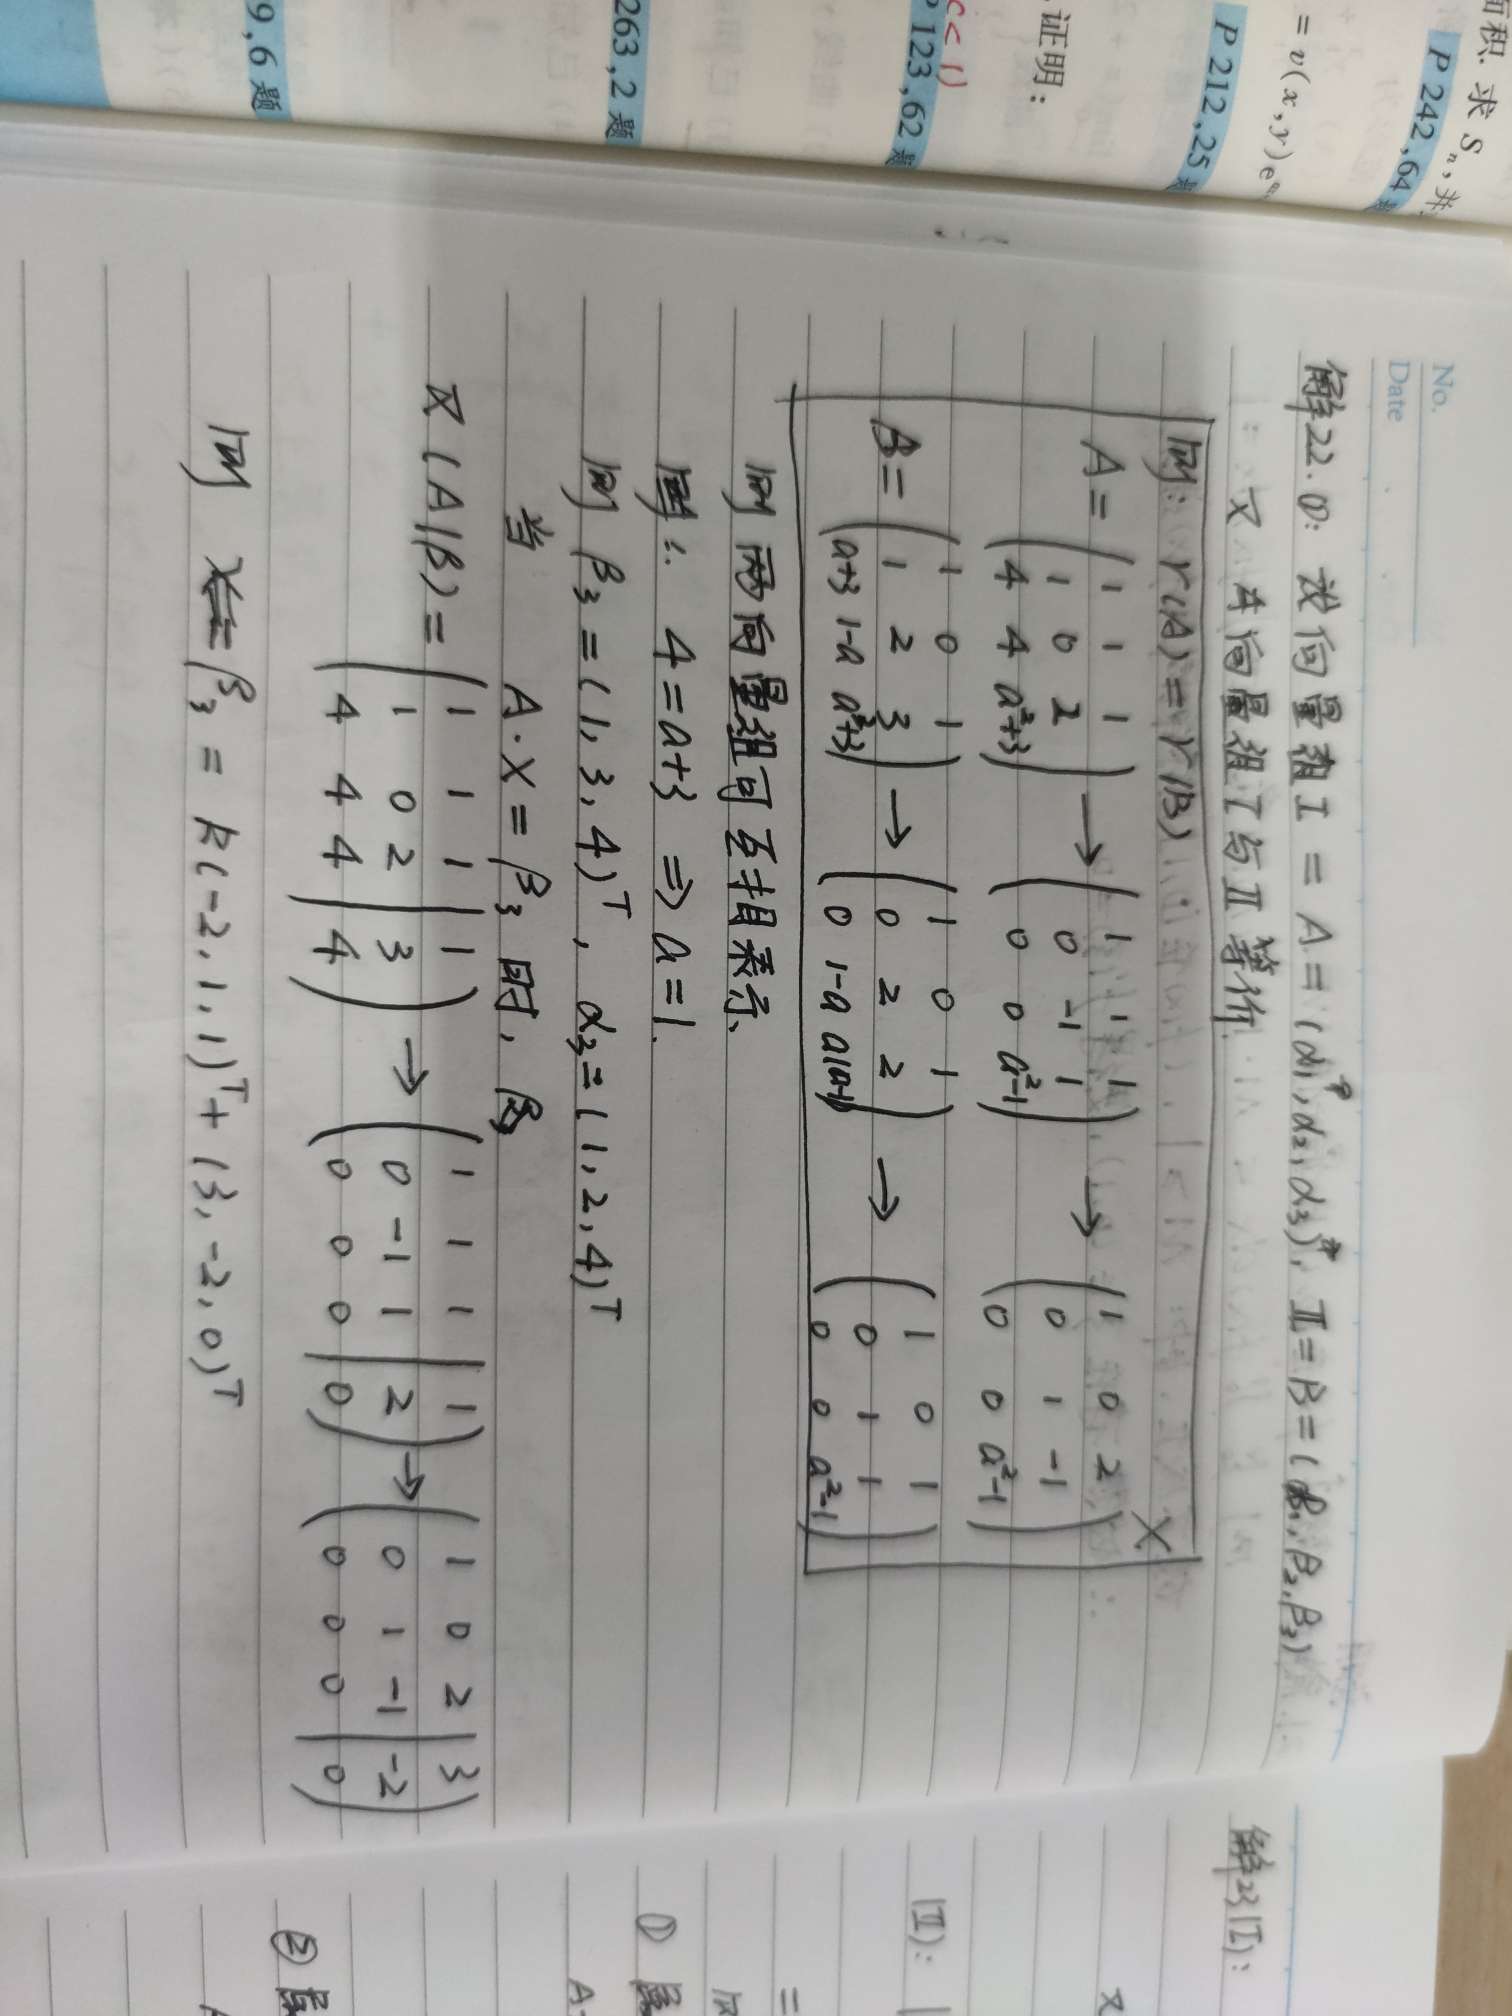 面积. 求 Sₙ, 并
P 242, 64
= v(x,y)e
P 212, 25
证明:
c<1)
P 123, 62 题
263, 2 题
9, 6 题
No.
Date
解22. ①: 设向量组 I = A = (α₁, α₂, α₃), II = B = (β₁, β₂, β₃)
又 ∵ 向量组 I 与 II 等价
则: r(A) = r(B) X
A = (1 1 1; 1 0 2; 4 4 a²+3) → (1 1 1; 0 -1 1; 0 0 a²-1) → (1 0 2; 0 1 -1; 0 0 a²-1)
B = (1 0 1; 1 2 3; a+3 1-a a²+3) → (1 0 1; 0 2 2; 0 1-a a(a-1)) → (1 0 1; 0 1 1; 0 0 a²-1)
则 两向量组可互相表示
∴ 4 = a+3 ⇒ a = 1.
则 β₃ = (1, 3, 4)ᵀ, α₃ = (1, 2, 4)ᵀ
当 A·X = β₃ 时,
又 (A|β) = (1 1 1 | 1; 1 0 2 | 3; 4 4 4 | 4) → (1 1 1 | 1; 0 -1 1 | 2; 0 0 0 | 0) → (1 0 2 | 3; 0 1 -1 | -2; 0 0 0 | 0)
则 β₃ = k(-2, 1, 1)ᵀ + (3, -2, 0)ᵀ
解23 (I):
又
(II):
=
①
A·
②